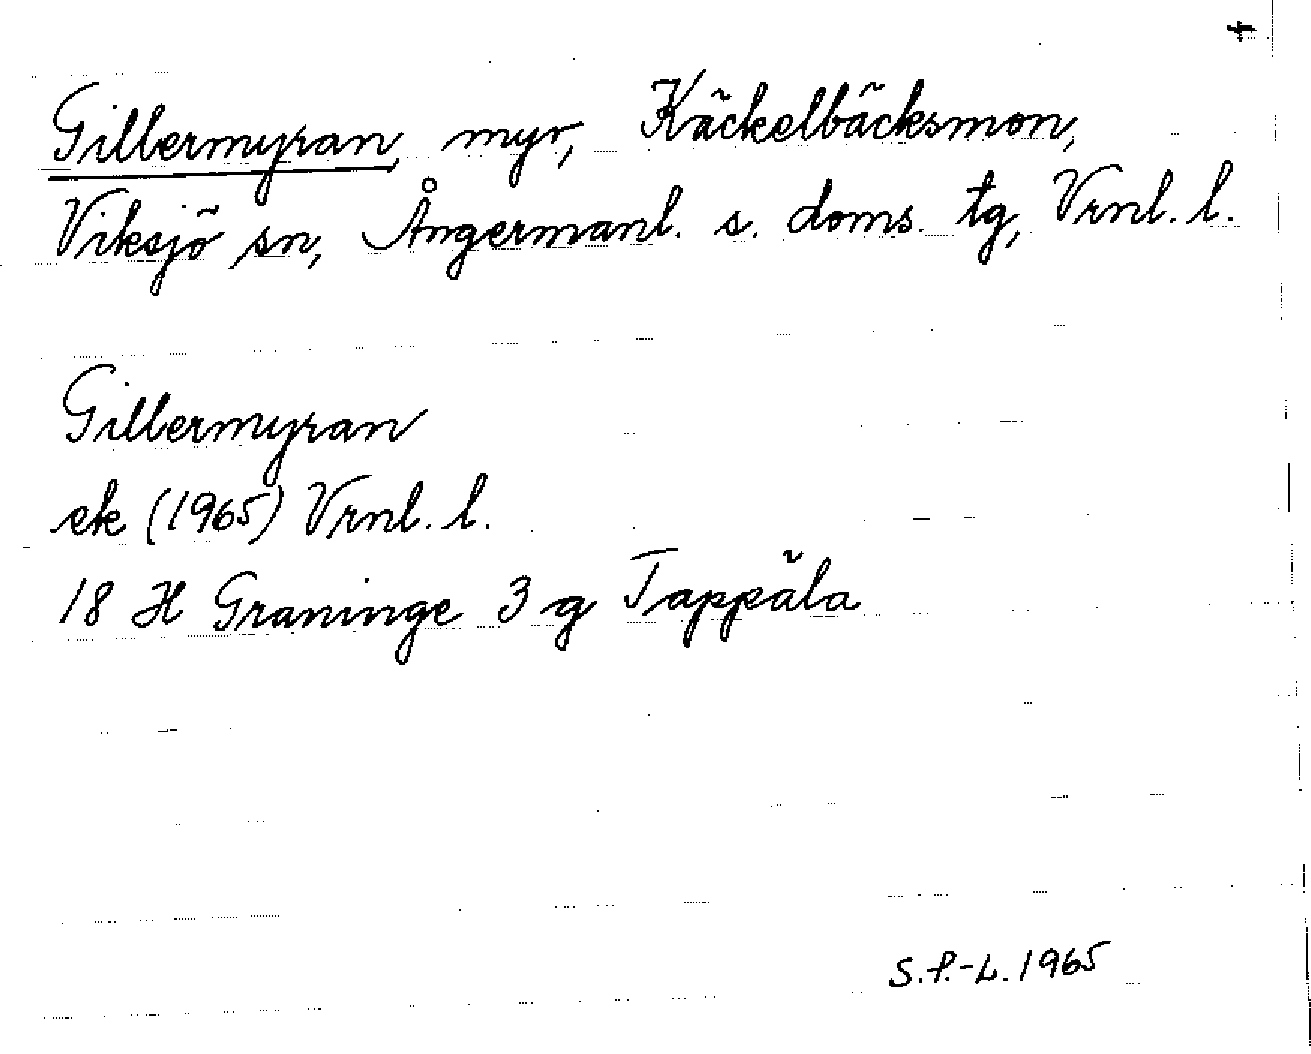 Gillermyran, myr, Käckelbäcksmon,
Viksjö sn, Ångermanl. s. doms. tg, Vrnl. l.
Gillermyran
ek (1965) Vrnl. l.
18 H Graninge 3 g Tappäla
S.P.-L. 1965